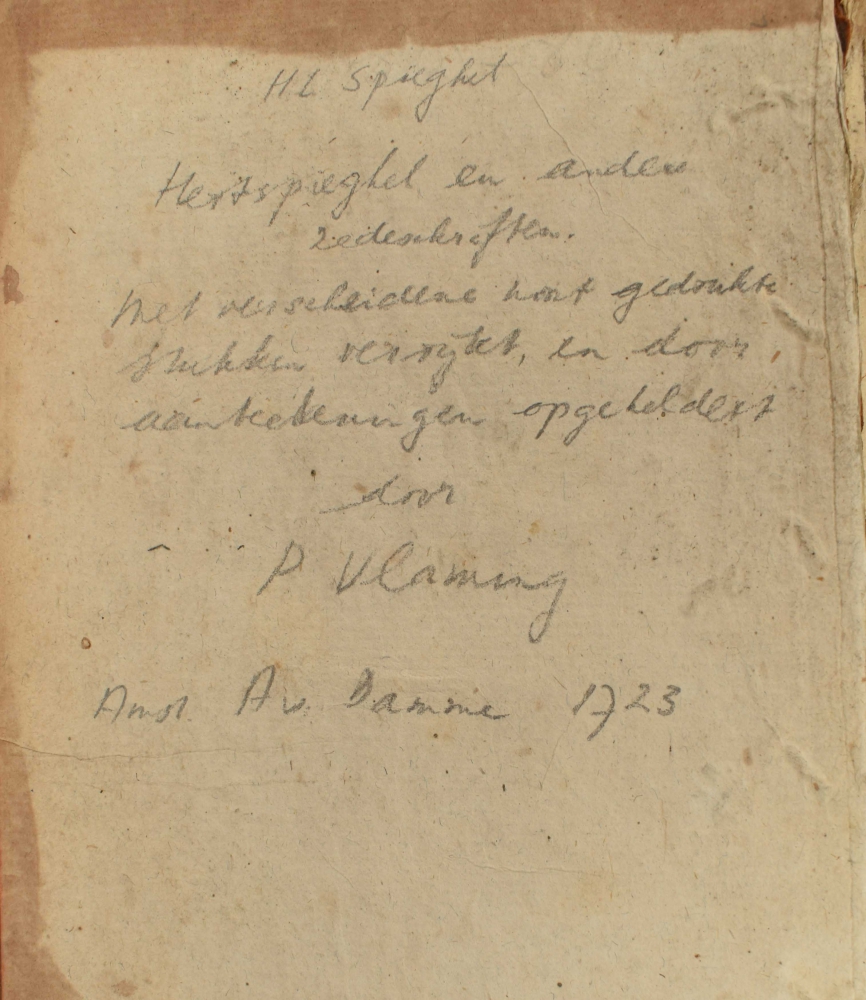 HL Spieghel
Hertspieghel en andere
zedeschriften.
Met verscheidene nooit gedrukte
stukken verrykt, en door
aantekeningen opgeheldert
door
P Vlaming
Amst. A v. Damme 1723